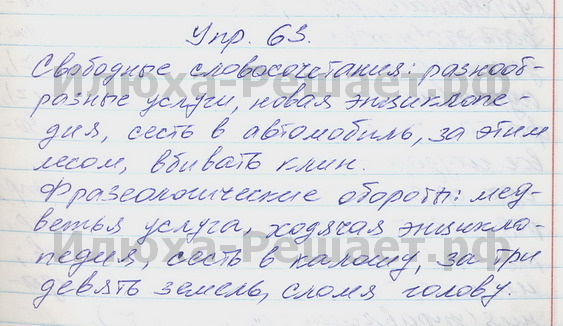 Упр. 63.
Свободные словосочетания: разнооб-
разные услуги, новая энциклопе-
дия, сесть в автомобиль, за этим
лесом, вбивать клин.
Фразеологические обороты: мед-
вежья услуга, ходячая энцикло-
педия, сесть в калошу, за три
девять земель, сломя голову.
Илюха-Решает.рф
Илюха-Решает.рф